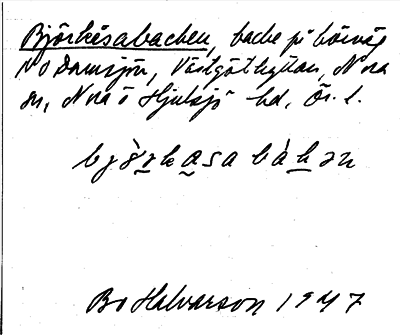 Björkåsabacken, backe på körväg
NO Damsjön, Västgöthyttan, Nora
sn, Nora o Hjulsjö hd, Ör. l.
bjö̀rkasabàkən
Bo Halvarson 1947